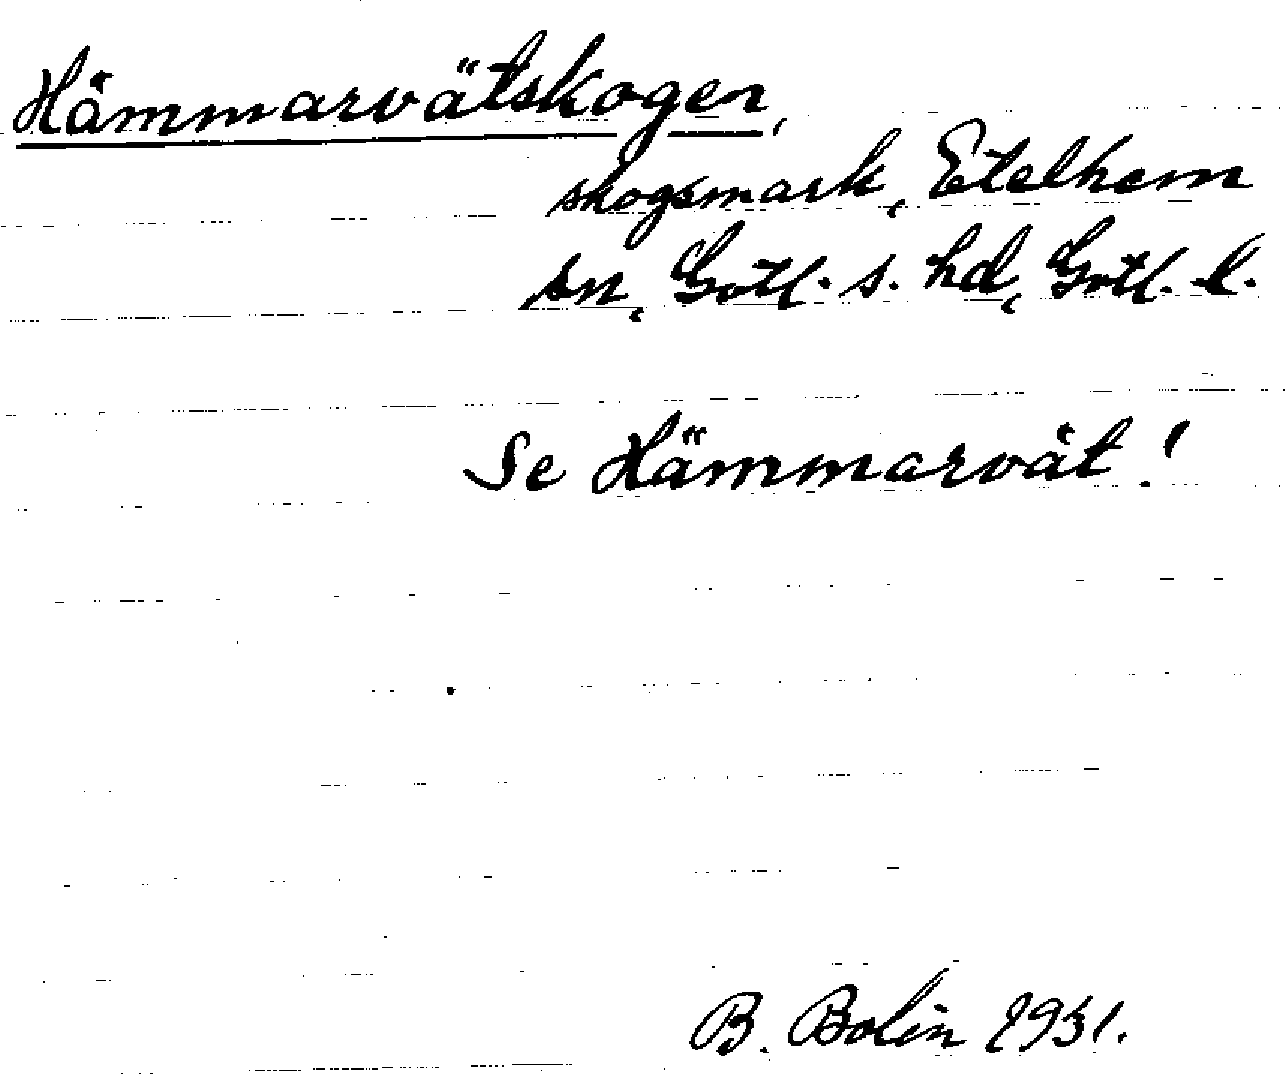 Hämmarvätskogen,
skogsmark, Etelhem
sn, Gotl. s. hd, Gotl. l.
Se Hämmarvät!
B. Bolin 1931.